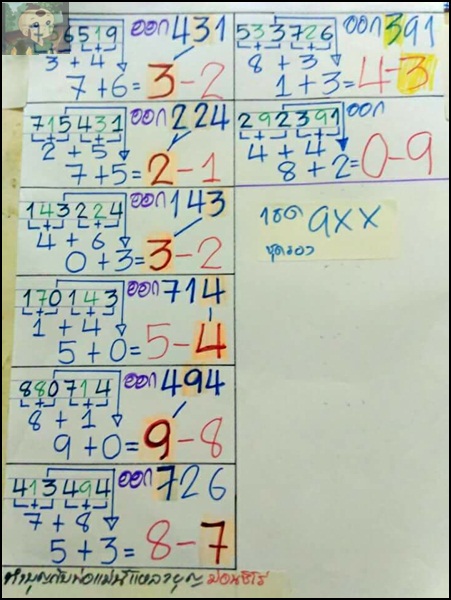 6519 ออก 431
3 + 4
7 + 6 = 3 - 2
715431 ออก 224
2 + 5
7 + 5 = 2 - 1
143224 ออก 143
4 + 6
0 + 3 = 3 - 2
170143 ออก 714
1 + 4
5 + 0 = 5 - 4
880714 ออก 494
8 + 1
9 + 0 = 9 - 8
413494 ออก 726
7 + 8
5 + 3 = 8 - 7
533726 ออก 391
8 + 3
1 + 3 = 4 - 3
292391 ออก
4 + 4
8 + 2 = 0 - 9
9xx
ทำบุญกับพ่อแม่